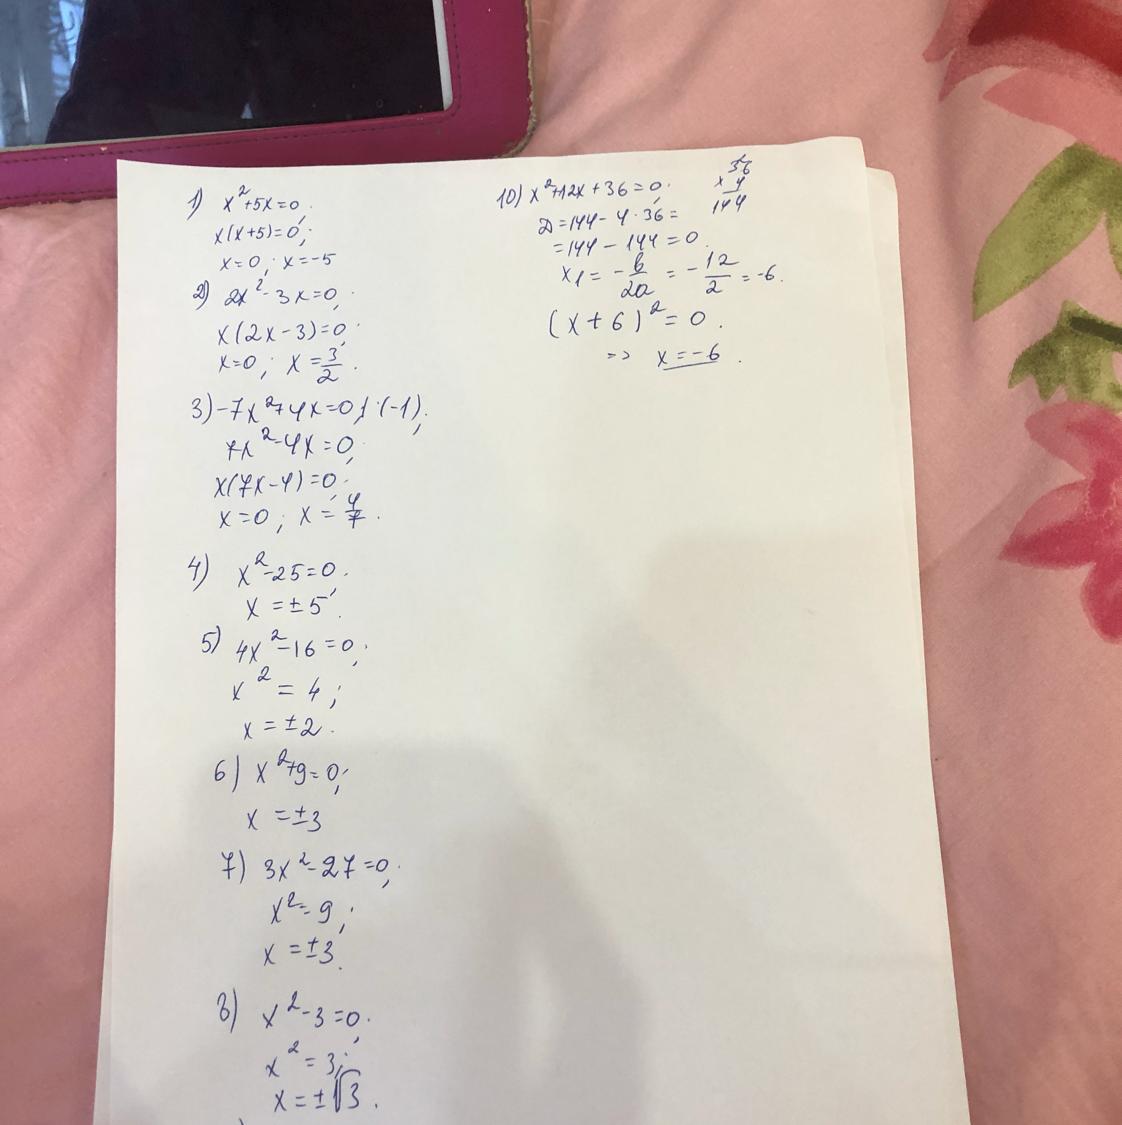 1) x²+5x=0;
x(x+5)=0;
x=0; x=-5
2) 2x²-3x=0;
x(2x-3)=0;
x=0; x=3/2.
3) -7x²+4x=0 /·(-1);
7x²-4x=0;
x(7x-4)=0;
x=0; x=4/7.
4) x²-25=0;
x=±5.
5) 4x²-16=0;
x²=4;
x=±2.
6) x²+9=0;
x=±3
7) 3x²-27=0;
x²=9;
x=±3.
8) x²-3=0;
x²=3;
x=±√3.
10) x²+12x+36=0;
D=144-4·36=
=144-144=0.
x1=-b/2a=-12/2=-6.
(x+6)²=0.
=> x=-6.
2
36
× 4
144